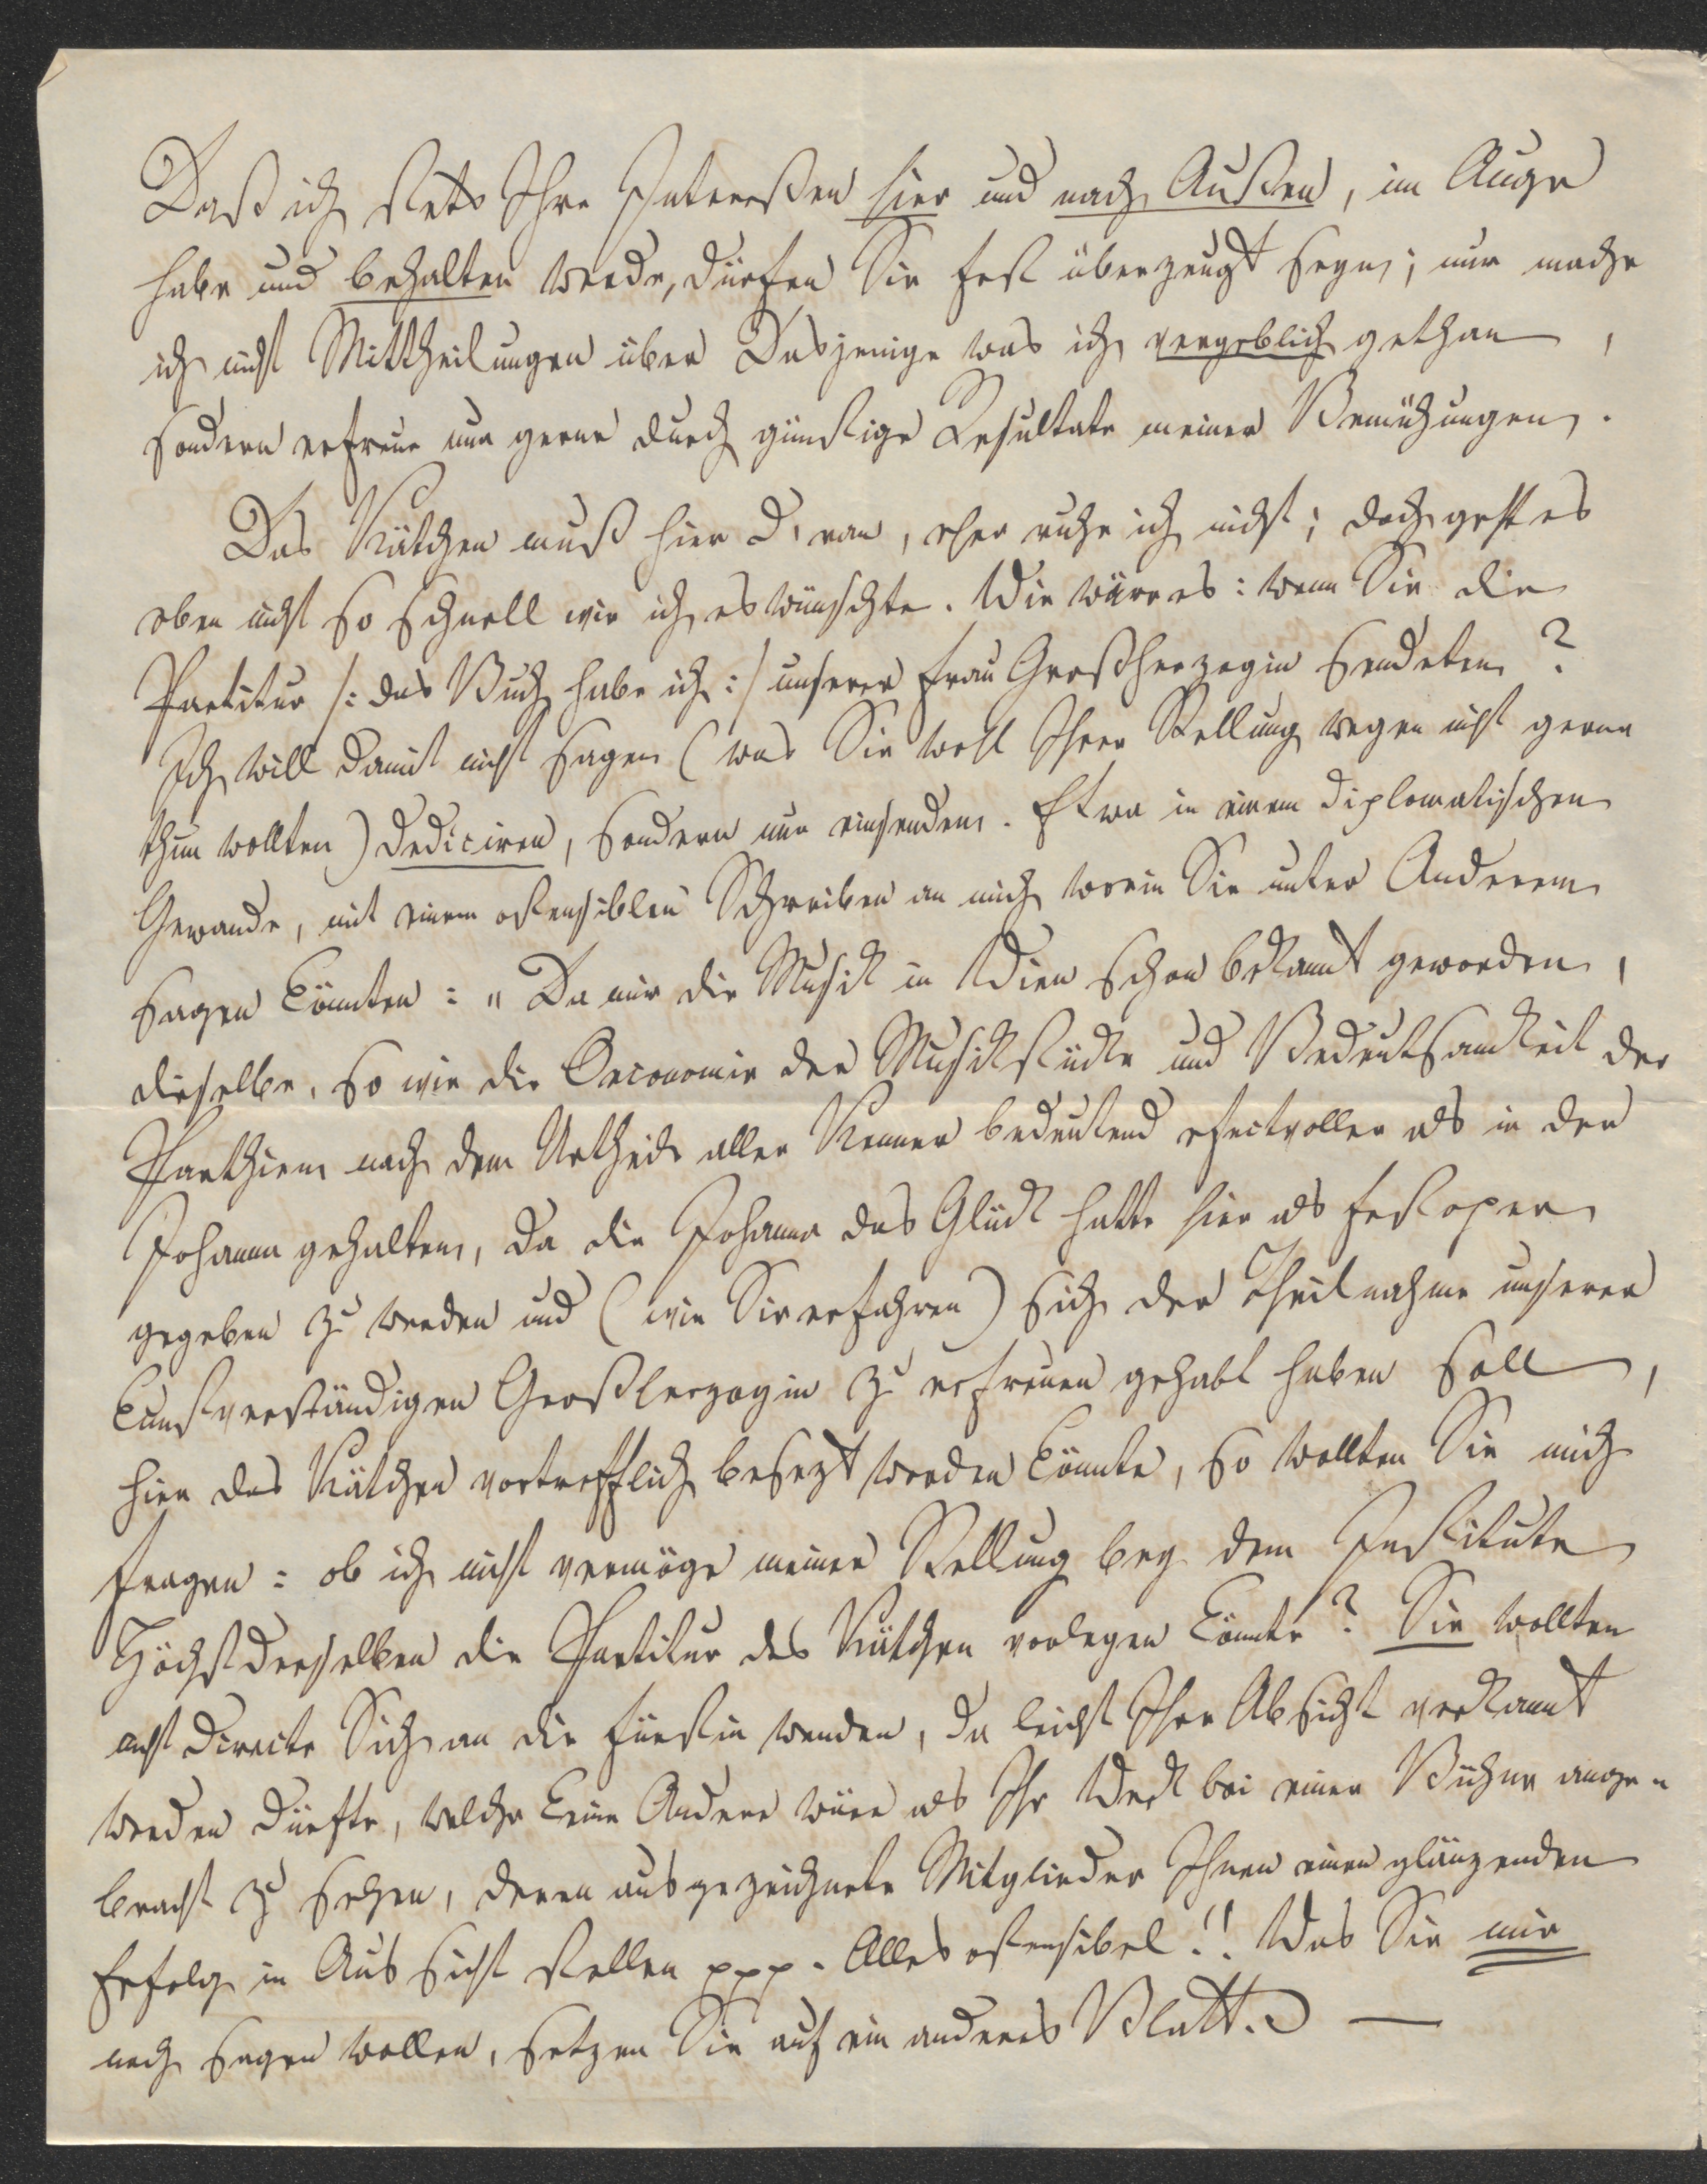 Daß ich stets Ihre Intereßen hier und nach Außen, im Auge
habe und behalten werde, dürfen Sie fest überzeugt seyn; nur mache
ich nicht Mittheilungen über Dasjenige was ich vergeblich gethan,
sondern erfreue nur gerne durch günstige Resultate meiner Bemühungen.
Das Kätchen muß hier d'ran, eher ruhe ich nicht; doch geht es
eben nicht so schnell wie ich es wünschte. Wie wäre es: wenn Sie die
Partitur /: das Buch habe ich :/ unserer Frau Großherzogin sendeten?
Ich will damit nicht sagen (was Sie wohl Ihrer Stellung wegen nicht gerne
thun wollten) dediciren, sondern nur einsenden. Etwa in einem diplomatischen
Gewande, mit einem ostensiblen Schreiben an mich worin Sie unter Anderem
sagen könnten: "Da mir die Musik in Wien schon bekannt geworden,
dieselbe, so wie die Oeconomie der Musikstücke und Bedeutsamkeit der
Parthien nach dem Urtheile aller Kenner bedeutend efectvoller als in der
Johanna gehalten, da die Johanna das Glück hatte hier als Festoper
gegeben zu werden und (wie Sie erfahren) sich der Theilnahme unserer
kunstverständigen Großherzogin zu erfreuen gehabt haben soll,
hier das Kätchen vortrefflich besezt werden könnte, so wollten Sie mich
fragen: ob ich nicht vermöge meiner Stellung bey dem Institute
Höchstderselben die Partitur des Kätchen vorlegen könnte? Sie wollten
nicht directe Sich an die Fürstin wenden, da leicht Ihre Absicht verkannt
werden dürfte, welche keine Andere wäre als Ihr Werk bei einer Bühne ange=
bracht zu sehen, deren ausgezeichnete Mitglieder Ihnen einen glänzenden
Erfolg in Aussicht stellen ppp. Alles ostensibel!! Was Sie mir
noch sagen wollen, setzen Sie auf ein anderes Blatt. —